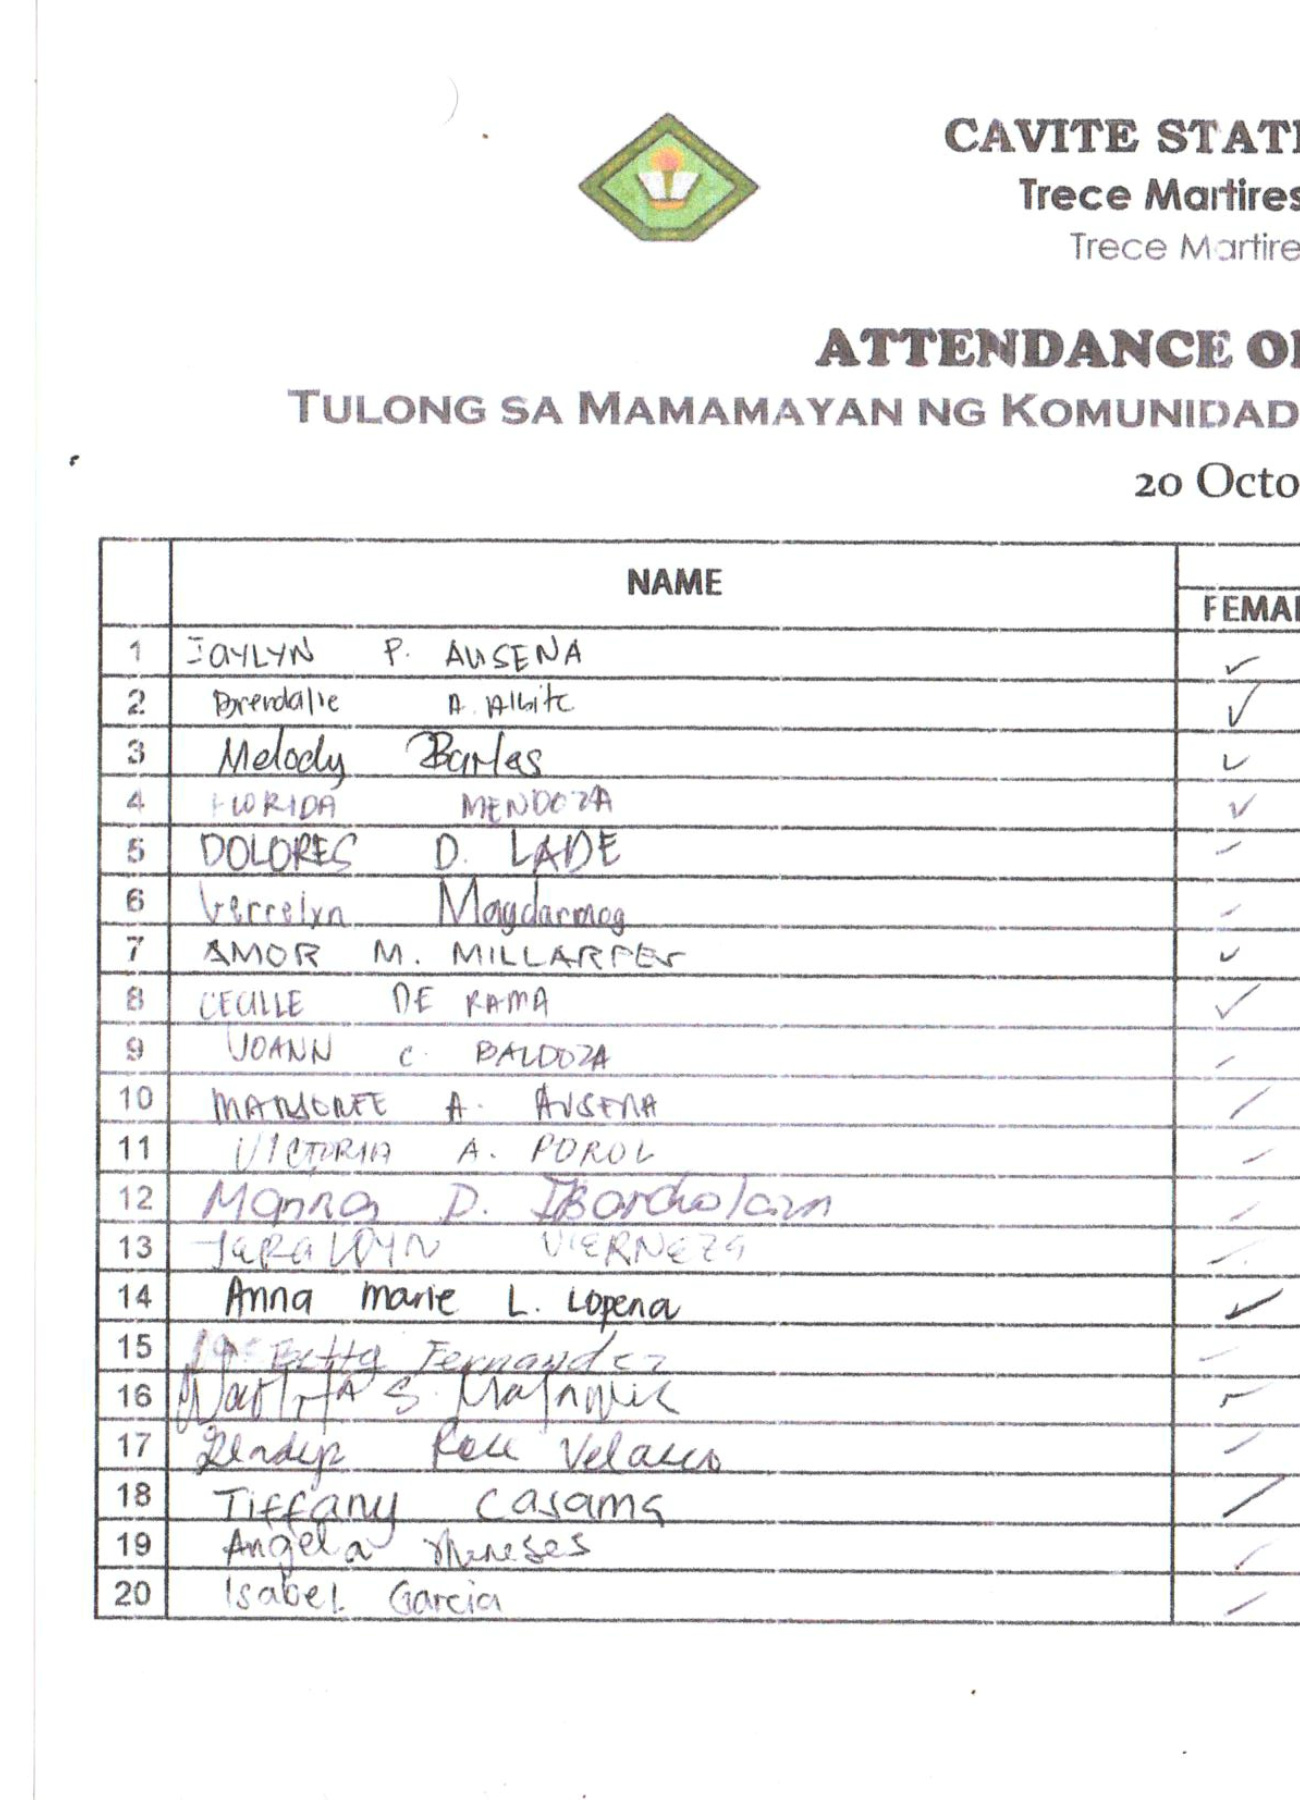 CAVITE STATE
Trece Martires
Trece Martire
ATTENDANCE OF
TULONG SA MAMAMAYAN NG KOMUNIDAD
20 Octo
NAME
FEMAL
1 JAYLYN P. AUSENA ✓
2 Brendalie A. Albite ✓
3 Melody Barles ✓
4 FLORIDA MENDOZA ✓
5 DOLORES D. LADE
6 Verrelyn Magdarmog
7 AMOR M. ✓
8 CECILLE DE RAMA ✓
9 JOANN C. BALDOZA
10 MARJOREE A. AUSENA
11 VICTORIA A. POROL
12 D.
13 JERALDYN VIERNEZA
14 Anna marie L. Lopena ✓
15 Fernandez
16 S.
17 Velasco
18 Tiffany Casama
19 Angela Meneses
20 Isabel Garcia